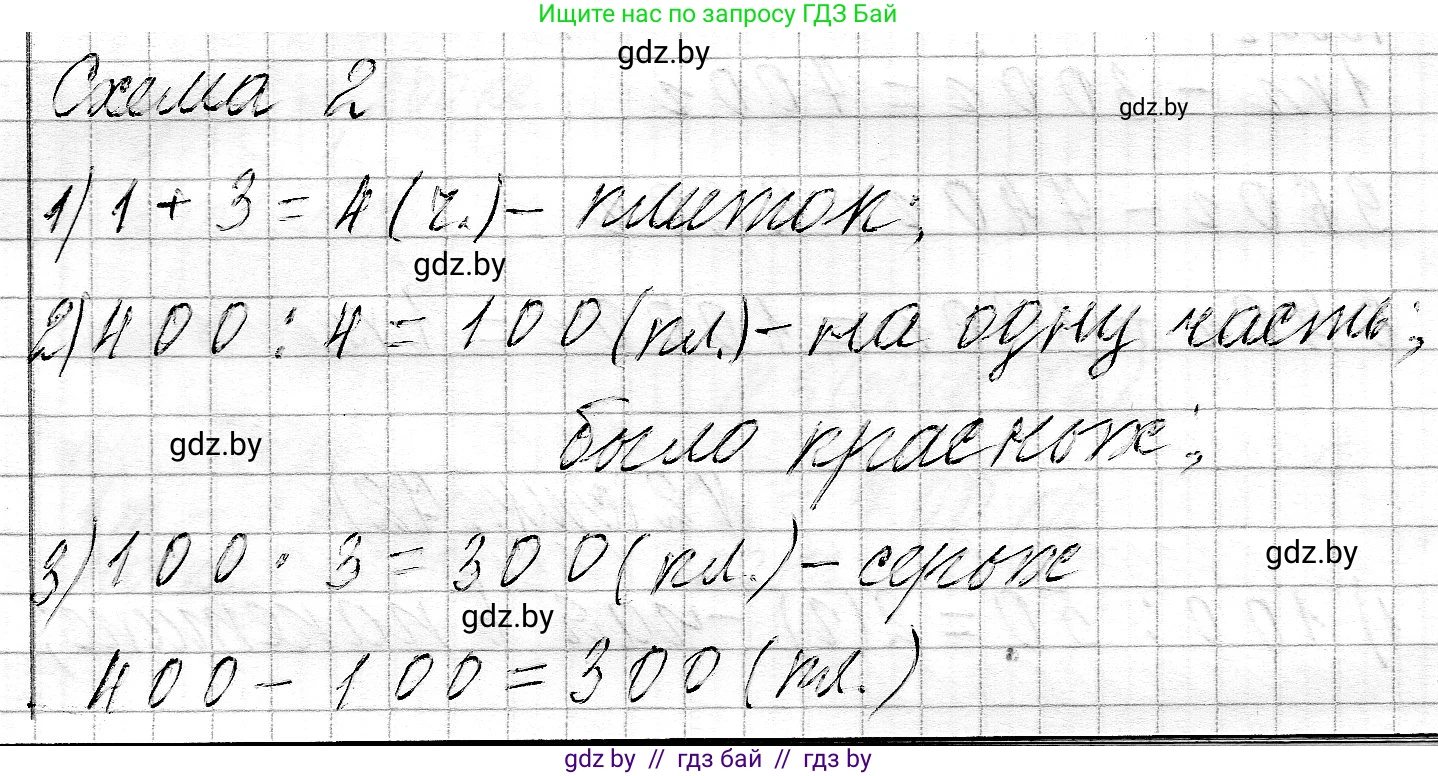 Ищите нас по запросу ГДЗ Бай
gdz.by
Схема 2
gdz.by
1) 1 + 3 = 4 (ч.) – плиток;
gdz.by
2) 400 : 4 = 100 (пл.) – на одну часть;
было красных;
gdz.by
3) 100 · 3 = 300 (пл.) – серых
gdz.by
gdz.by
400 – 100 = 300 (пл.)
gdz.by // гдз бай // гдз by